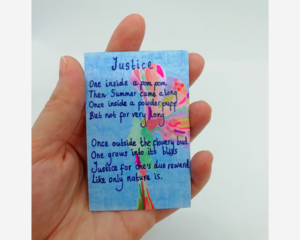 Justice
One inside a pom pom
Then Summer came along
Once inside a powder puff
But not for very long
Once outside the flowery bud
One grows into it's bliss
Justice for one's due reward
Like only nature is.